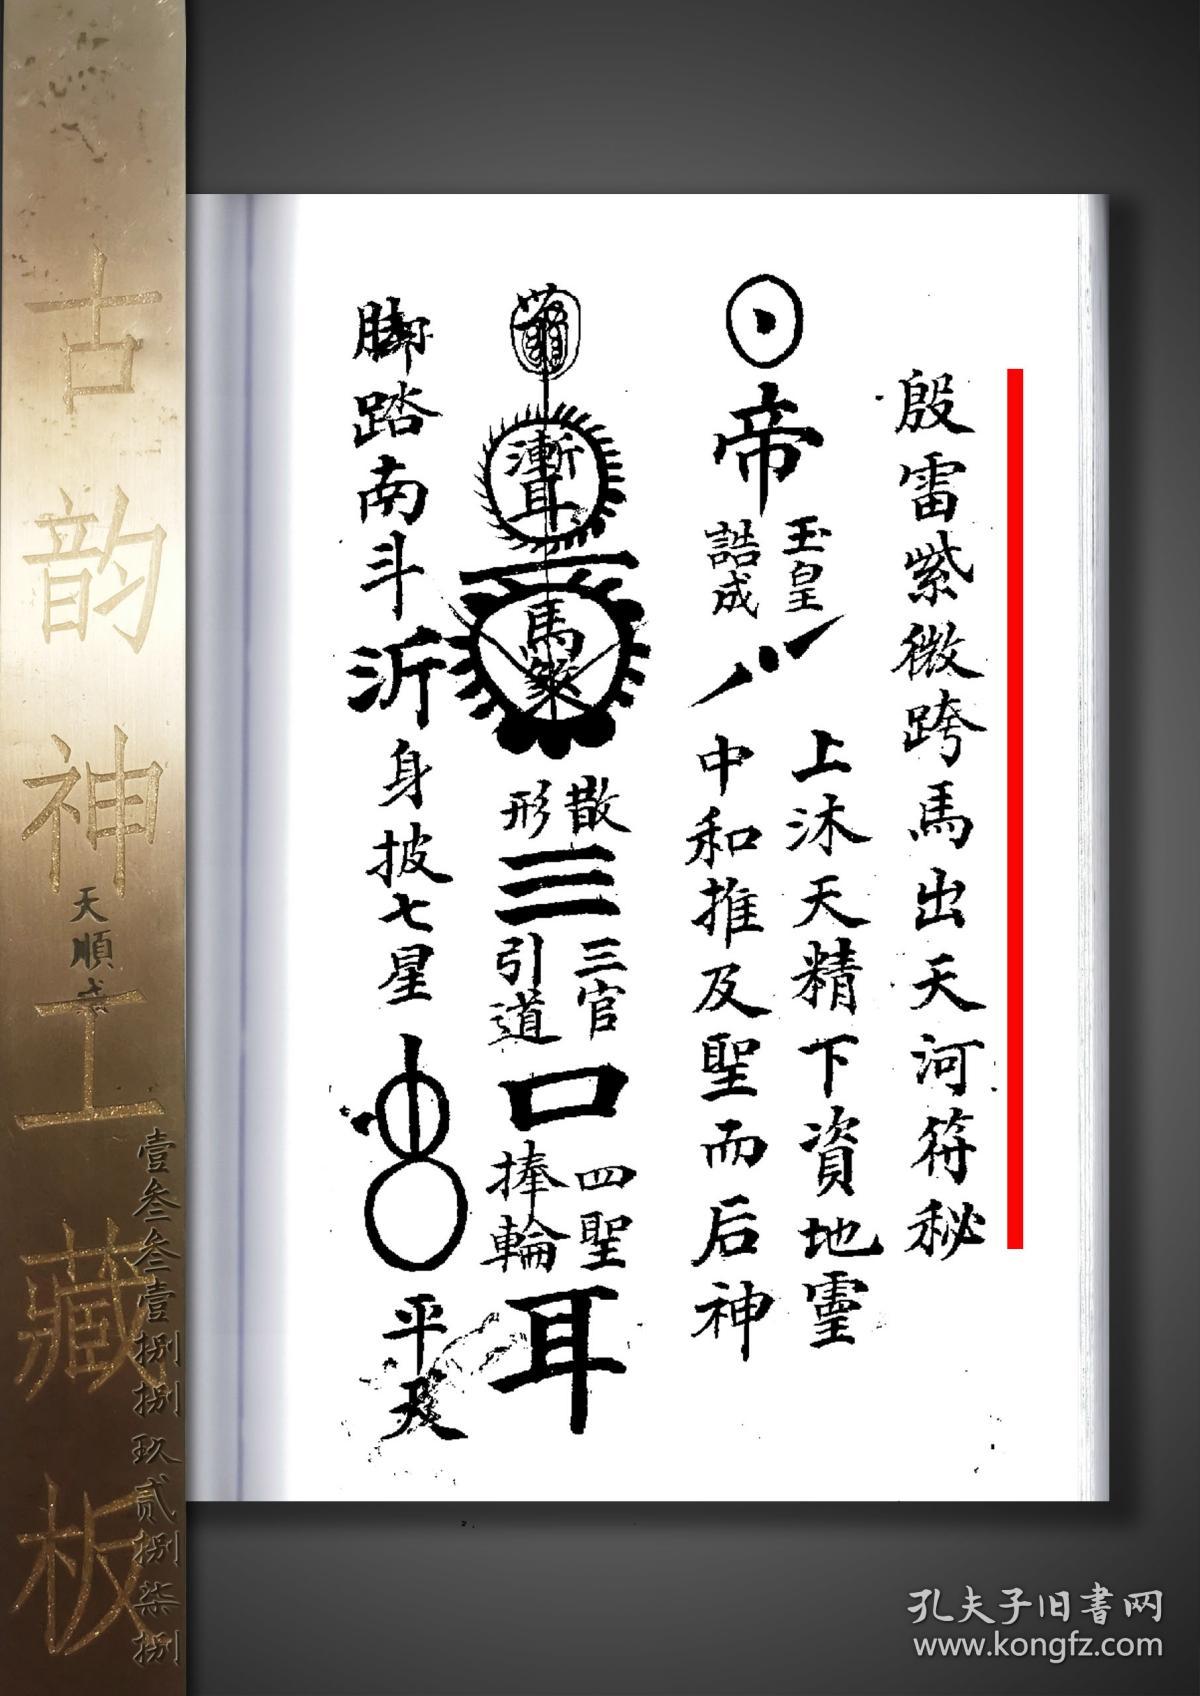 殷雷紫微跨馬出天河符秘
帝
玉皇
誥成
上沐天精下資地靈
中和推及聖而后神
漸耳
馬
散
形
三
三官
引道
口
四聖
捧輪
耳
脚踏南斗
沂
身披七星
平
古韵神工藏板
天順
壹叁叁壹捌捌玖贰捌柒捌
孔夫子旧書网
www.kongfz.com